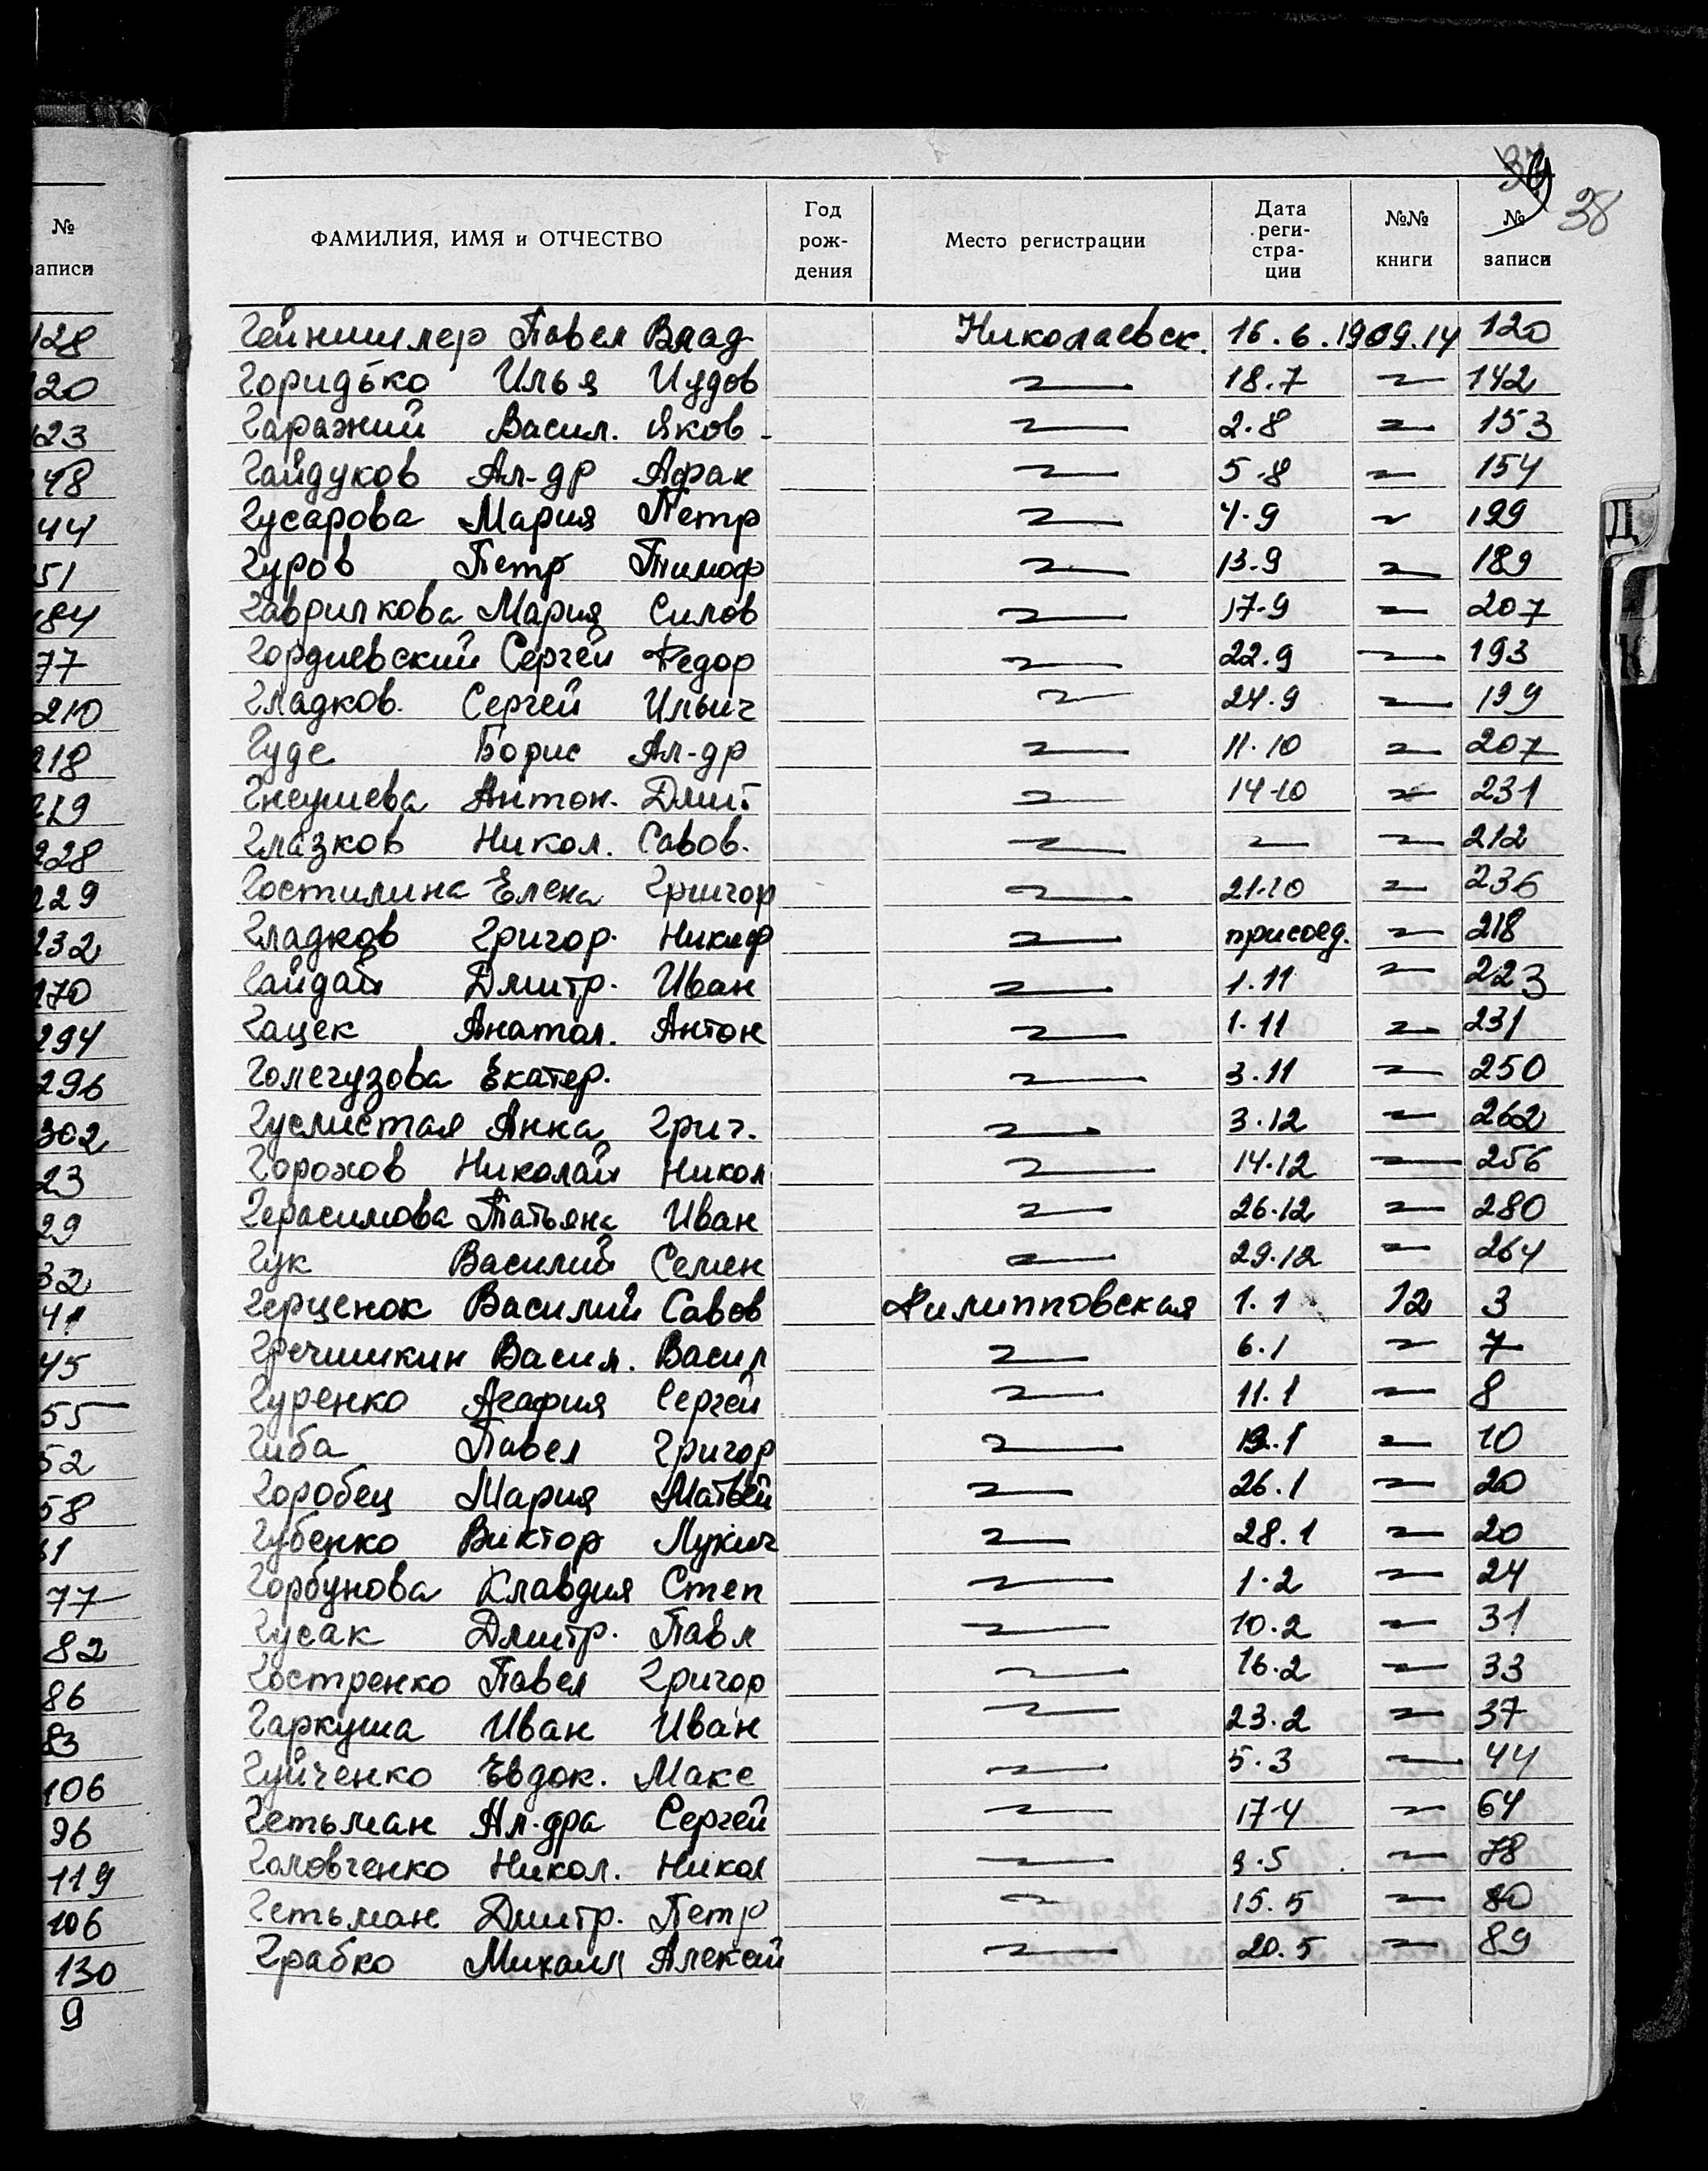 №
записи
128
120
123
148
144
151
184
177
210
218
219
228
229
232
270
294
296
302
23
29
32
41
45
55
52
58
61
77
82
86
83
106
96
119
106
130
9
38
ФАМИЛИЯ, ИМЯ и ОТЧЕСТВО Год рож-дения Место регистрации Дата реги-стра-ции №№ книги № записи
Гейншилер Павел Влад Николаевск. 16.6.1909.14 120
Горидько Илья Иудов 〃 18.7 〃 142
Гаражий Васил. Яков - 〃 2.8 〃 153
Гайдуков Ал-др Афан 〃 5.8 〃 154
Гусарова Мария Петр 〃 4.9 〃 199
Гуров Петр Тимоф 〃 13.9 〃 189
Гаврилкова Мария Силов 〃 17.9 〃 207
Гордиевский Сергей Федор 〃 22.9 〃 193
Гладков. Сергей Ильич 〃 24.9 〃 199
Гуде Борис Ал-др 〃 11.10 〃 207
Гнеушева Антон. Дмит 〃 14.10 〃 231
Глазков Никол. Савов. 〃 〃 〃 212
Гостилина Елена Григор 〃 21.10 〃 236
Гладков Григор. Никиф 〃 присоед. 〃 218
Гайдай Дмитр. Иван 〃 1.11 〃 223
Гацек Анатол. Антон 〃 1.11 〃 231
Гомегузова Екатер. 〃 3.11 〃 250
Гуслистая Анна Григ. 〃 3.12 〃 262
Горохов Николай Никол 〃 14.12 〃 256
Герасимова Татьяна Иван 〃 26.12 〃 280
Гук Василий Семен 〃 29.12 〃 264
Герценок Василий Савов Филипповская 1.1 12 3
Гречишкин Васил. Васил 〃 6.1 〃 7
Гуренко Агафия Сергей 〃 11.1 〃 8
Гиба Павел Григор 〃 19.1 〃 10
Горобец Мария Матвей 〃 26.1 〃 20
Губенко Виктор Лукич 〃 28.1 〃 20
Горбунова Клавдия Степ 〃 1.2 〃 24
Гусак Дмитр. Павл 〃 10.2 〃 31
Гостренко Павел Григор 〃 16.2 〃 33
Гаркуша Иван Иван 〃 23.2 〃 37
Гуйченко Евдок. Макс 〃 5.3 〃 44
Гетьман Ал.дра Сергей 〃 17.4 〃 64
Головченко Никол. Никол 〃 9.5 〃 78
Гетьман Дмитр. Петр 〃 15.5 〃 80
Грабко Михаил Алексей 〃 20.5 〃 89
Д
К